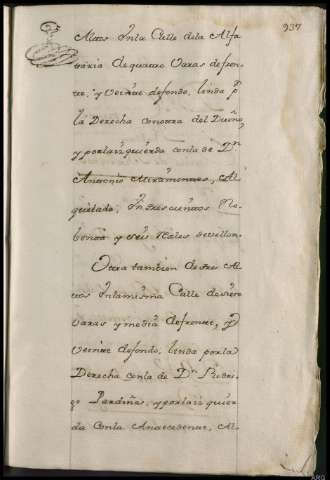 937
Altos Inla Calle dela Alfa
raria de quatro Varas defron
te, y veinte defondo, linda pr
la Derecha conotra del Dueño,
y porla izquierda conla de Dn
Antonio Miramontes, Al
quilado, Intrescientos No
benta y seis Reales devellon.
Otra tambien de tres Al
tos Inlamisma Calle desiete
varas y media defronte, y
veinte defondo, linda porla
Derecha conla de Dn Rodri
go Pardiñas, y porla izquier
da conla Antecedente, Al